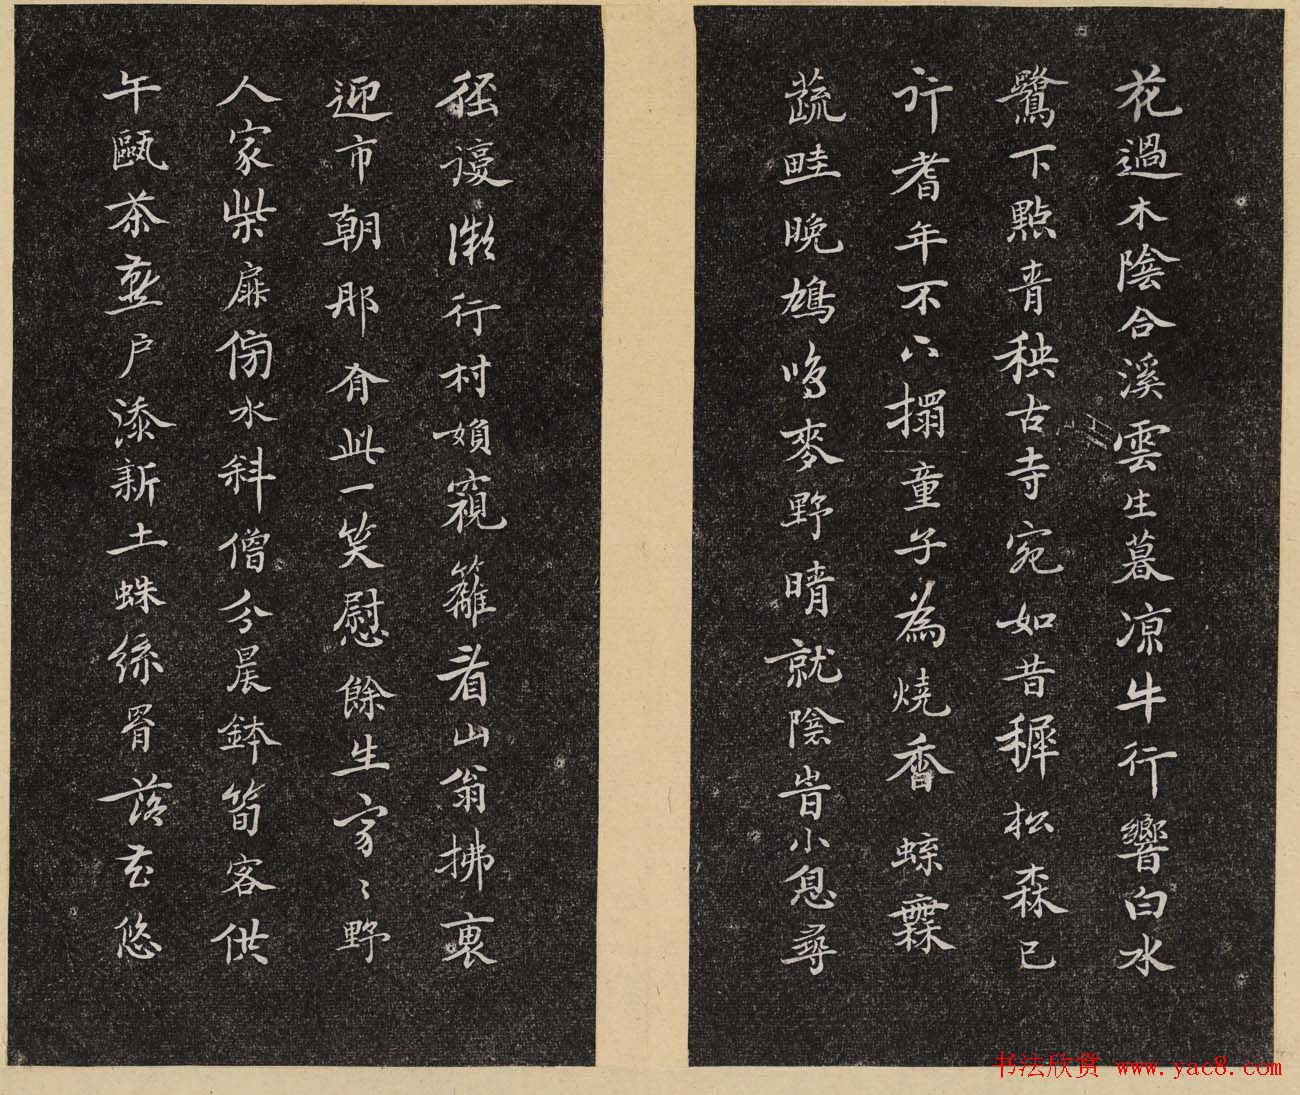 花過木陰合溪雲生暮凉牛行響白水
鷺下點青秧古寺宛如昔穉松森已
行耆年不下榻童子為燒香
蔬畦晚鳩鳴麥野晴就陰旹小息尋
徑謾微行村婦窺籬看山翁拂
迎市朝那有此一笑慰餘生家〻野
人家柴扉傍水斜僧分晨鉢筍客供
午甌茶燕戶添新土蛛絲罥落花悠
书法欣赏 www.yac8.com